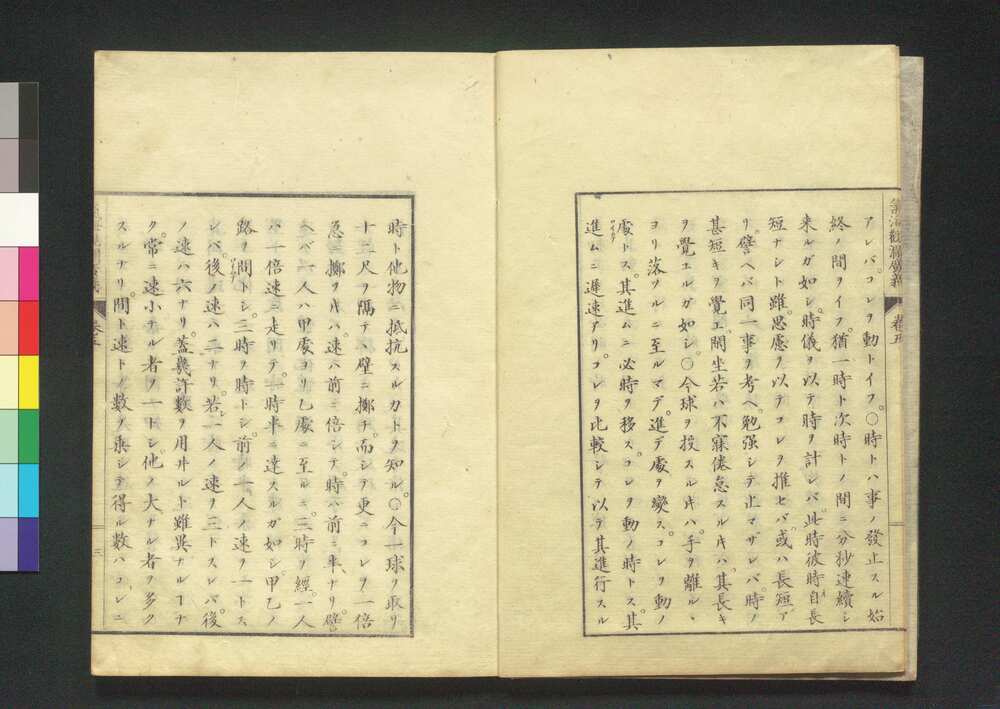 氣海觀瀾廣義 卷五
アレバ。コレヲ動トイフ。〇時トハ事ノ發止スル始
終ノ間ヲイフ。猶一時ト次時トノ間ニ分秒連續シ
来ルガ如シ。時儀ヲ以テ時ヲ計レバ。此時彼時自長
短ナシト雖。思慮ヲ以テコレヲ推セバ。或ハ長短ア
リ。譬ヘバ同一事ヲ考ヘ。勉强シテ止マザレバ。時ノ
甚短キヲ覺エ。閑坐若ハ不寐倦怠スル片ハ。其長キ
ヲ覺エルガ如シ。〇今球ヲ投スル片ハ。手ヲ離ルヽ
ヨリ落ツルニ至ルマデ。進デ處ヲ變ス。コレヲ動ノ
處トス。其進ムニ必時ヲ移ス。コレヲ動ノ時トス。其
進ムニ遲速アリ。コレヲ比較シテ以テ其進行スル
時ト他物ニ抵抗スルカトヲ知ル。〇今一球ヲ取リ
十二尺ヲ隔テヽ壁ニ擲チ。而シテ更ニコレヲ一倍
急ニ擲ツ片ハ。速ハ前ニ倍シテ。時ハ前ニ半ナリ。譬
ヘバ一人ハ甲處ヨリ乙處ニ至ルニ。三時ヲ經。一人
ハ一倍速ニ走リテ。一時半ニ達スルガ如シ。甲乙ノ
路ヲ間トシ。三時ヲ時トシ。前ノ一人ノ速ヲ一トス
レバ。後ノ速ハ二ナリ。若シ一人ノ速ヲ三トスレバ後
ノ速ハ六ナリ。蓋幾許數ヲ用ヰルト雖異ナルナ
ク。常ニ速小ナル者ヲ一トシ。他ノ大ナル者ヲ多ク
スルナリ。間ト速トノ數ヲ乘シテ得ル數ハ。コレニ
卷五
三